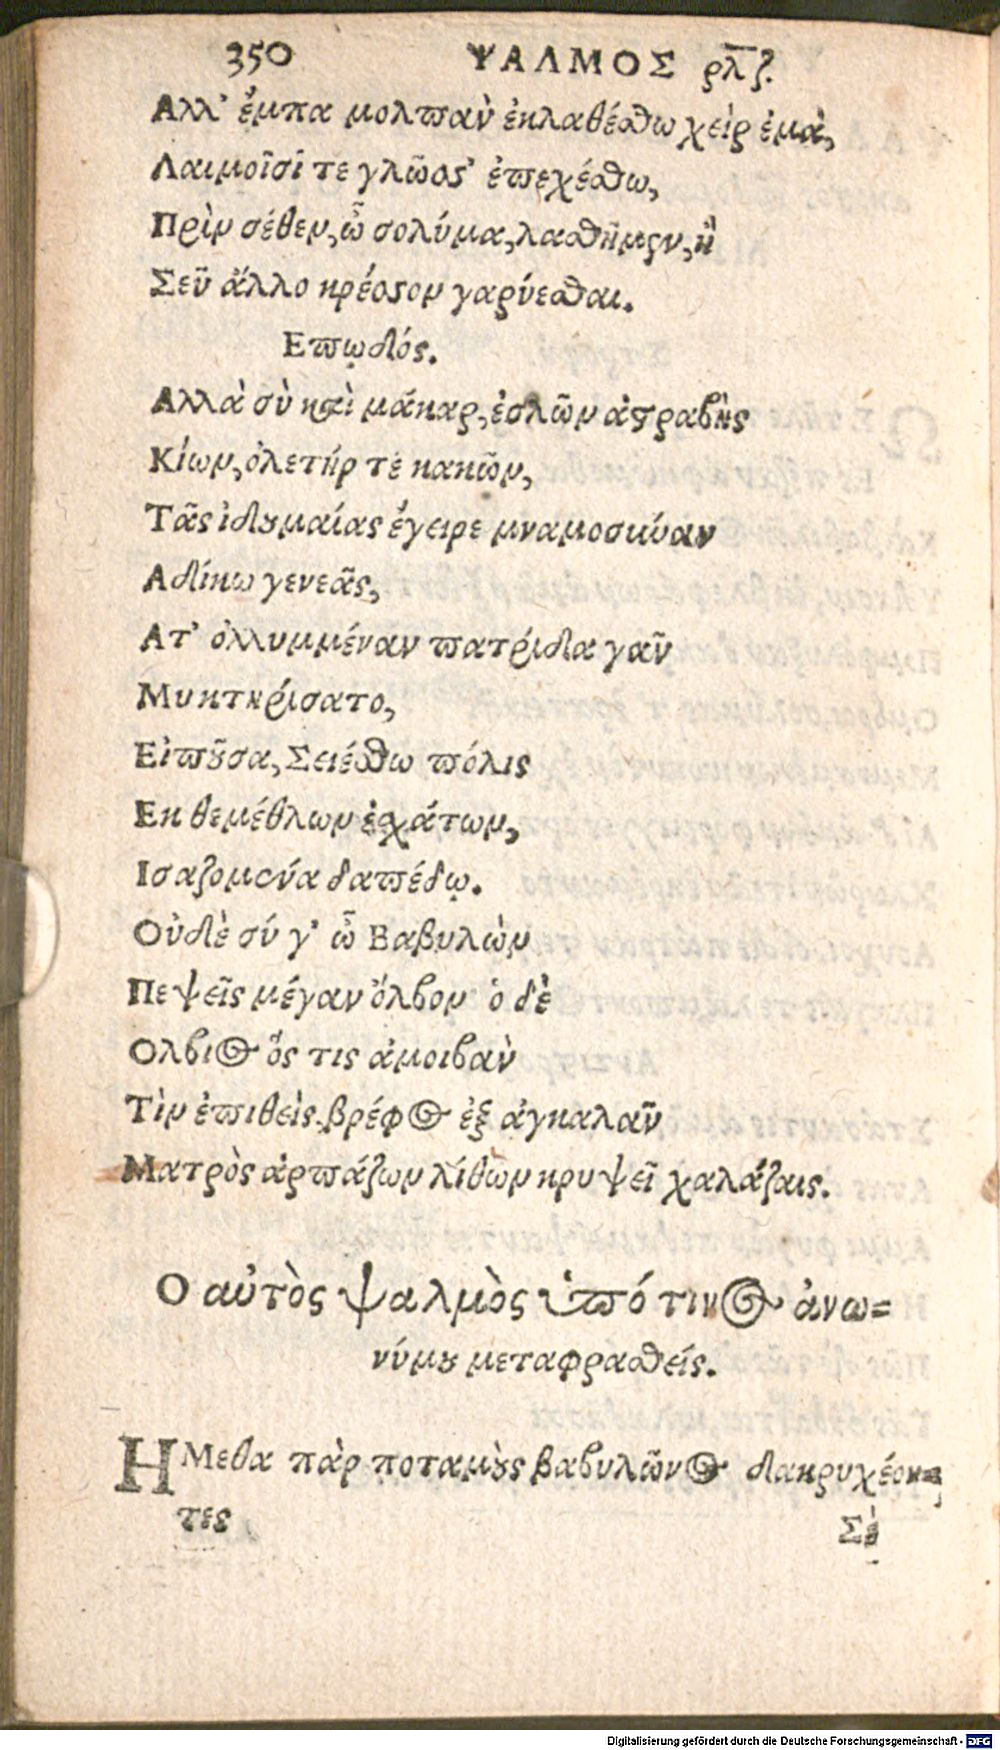 350 ΨΑΛΜΟΣ ρλζ.
Αλλ' ἔμπα μολπαν ἐκλαθέσθω χεὶρ ἐμὰ,
Λαιμοῖσί τε γλῶσσ' ἐπεχέσθω,
Πρὶν σέθεν, ὦ σολύμα, λασθήμεν, ἢ
Σεῦ ἄλλο κρέοσσον γαρύεσθαι.
Επῳδός.
Αλλὰ σὺ καὶ μάκαρ, ἐσλῶν ἀστραβὴς
Κίων, ὀλετήρ τε κακῶν,
Τᾶς ἰδουμαίας ἔγειρε μναμοσύναν
Αδίκω γενεᾶς,
Ατ' ὀλλυμμέναν πατρίδα γαῖν
Μυκτηρίσατο,
Εἰποῦσα, Σειέσθω πόλις
Εκ θεμέθλων ἐσχάτων,
Ισαζομένα δαπέδῳ.
Οὐδὲ σύ γ' ὦ Βαβυλὼν
Πεψεῖς μέγαν ὄλβον ὁ δὲ
Ολβιος ὅς τις ἀμοιβὰν
Τὶν ἐπιθεὶς βρέφος ἐξ ἀγκαλᾶν
Ματρὸς ἁρπάζων λίθων κρυψεῖ χαλάζαις.
Ο αὐτὸς ψαλμὸς ὑπό τινος ἀνω=
νύμου μεταφρασθείς.
ΗΜεθα πὰρ ποταμοὺς βαβυλῶνος δακρυχέον=
τες
Σὲ
Digitalisierung gefördert durch die Deutsche Forschungsgemeinschaft - DFG